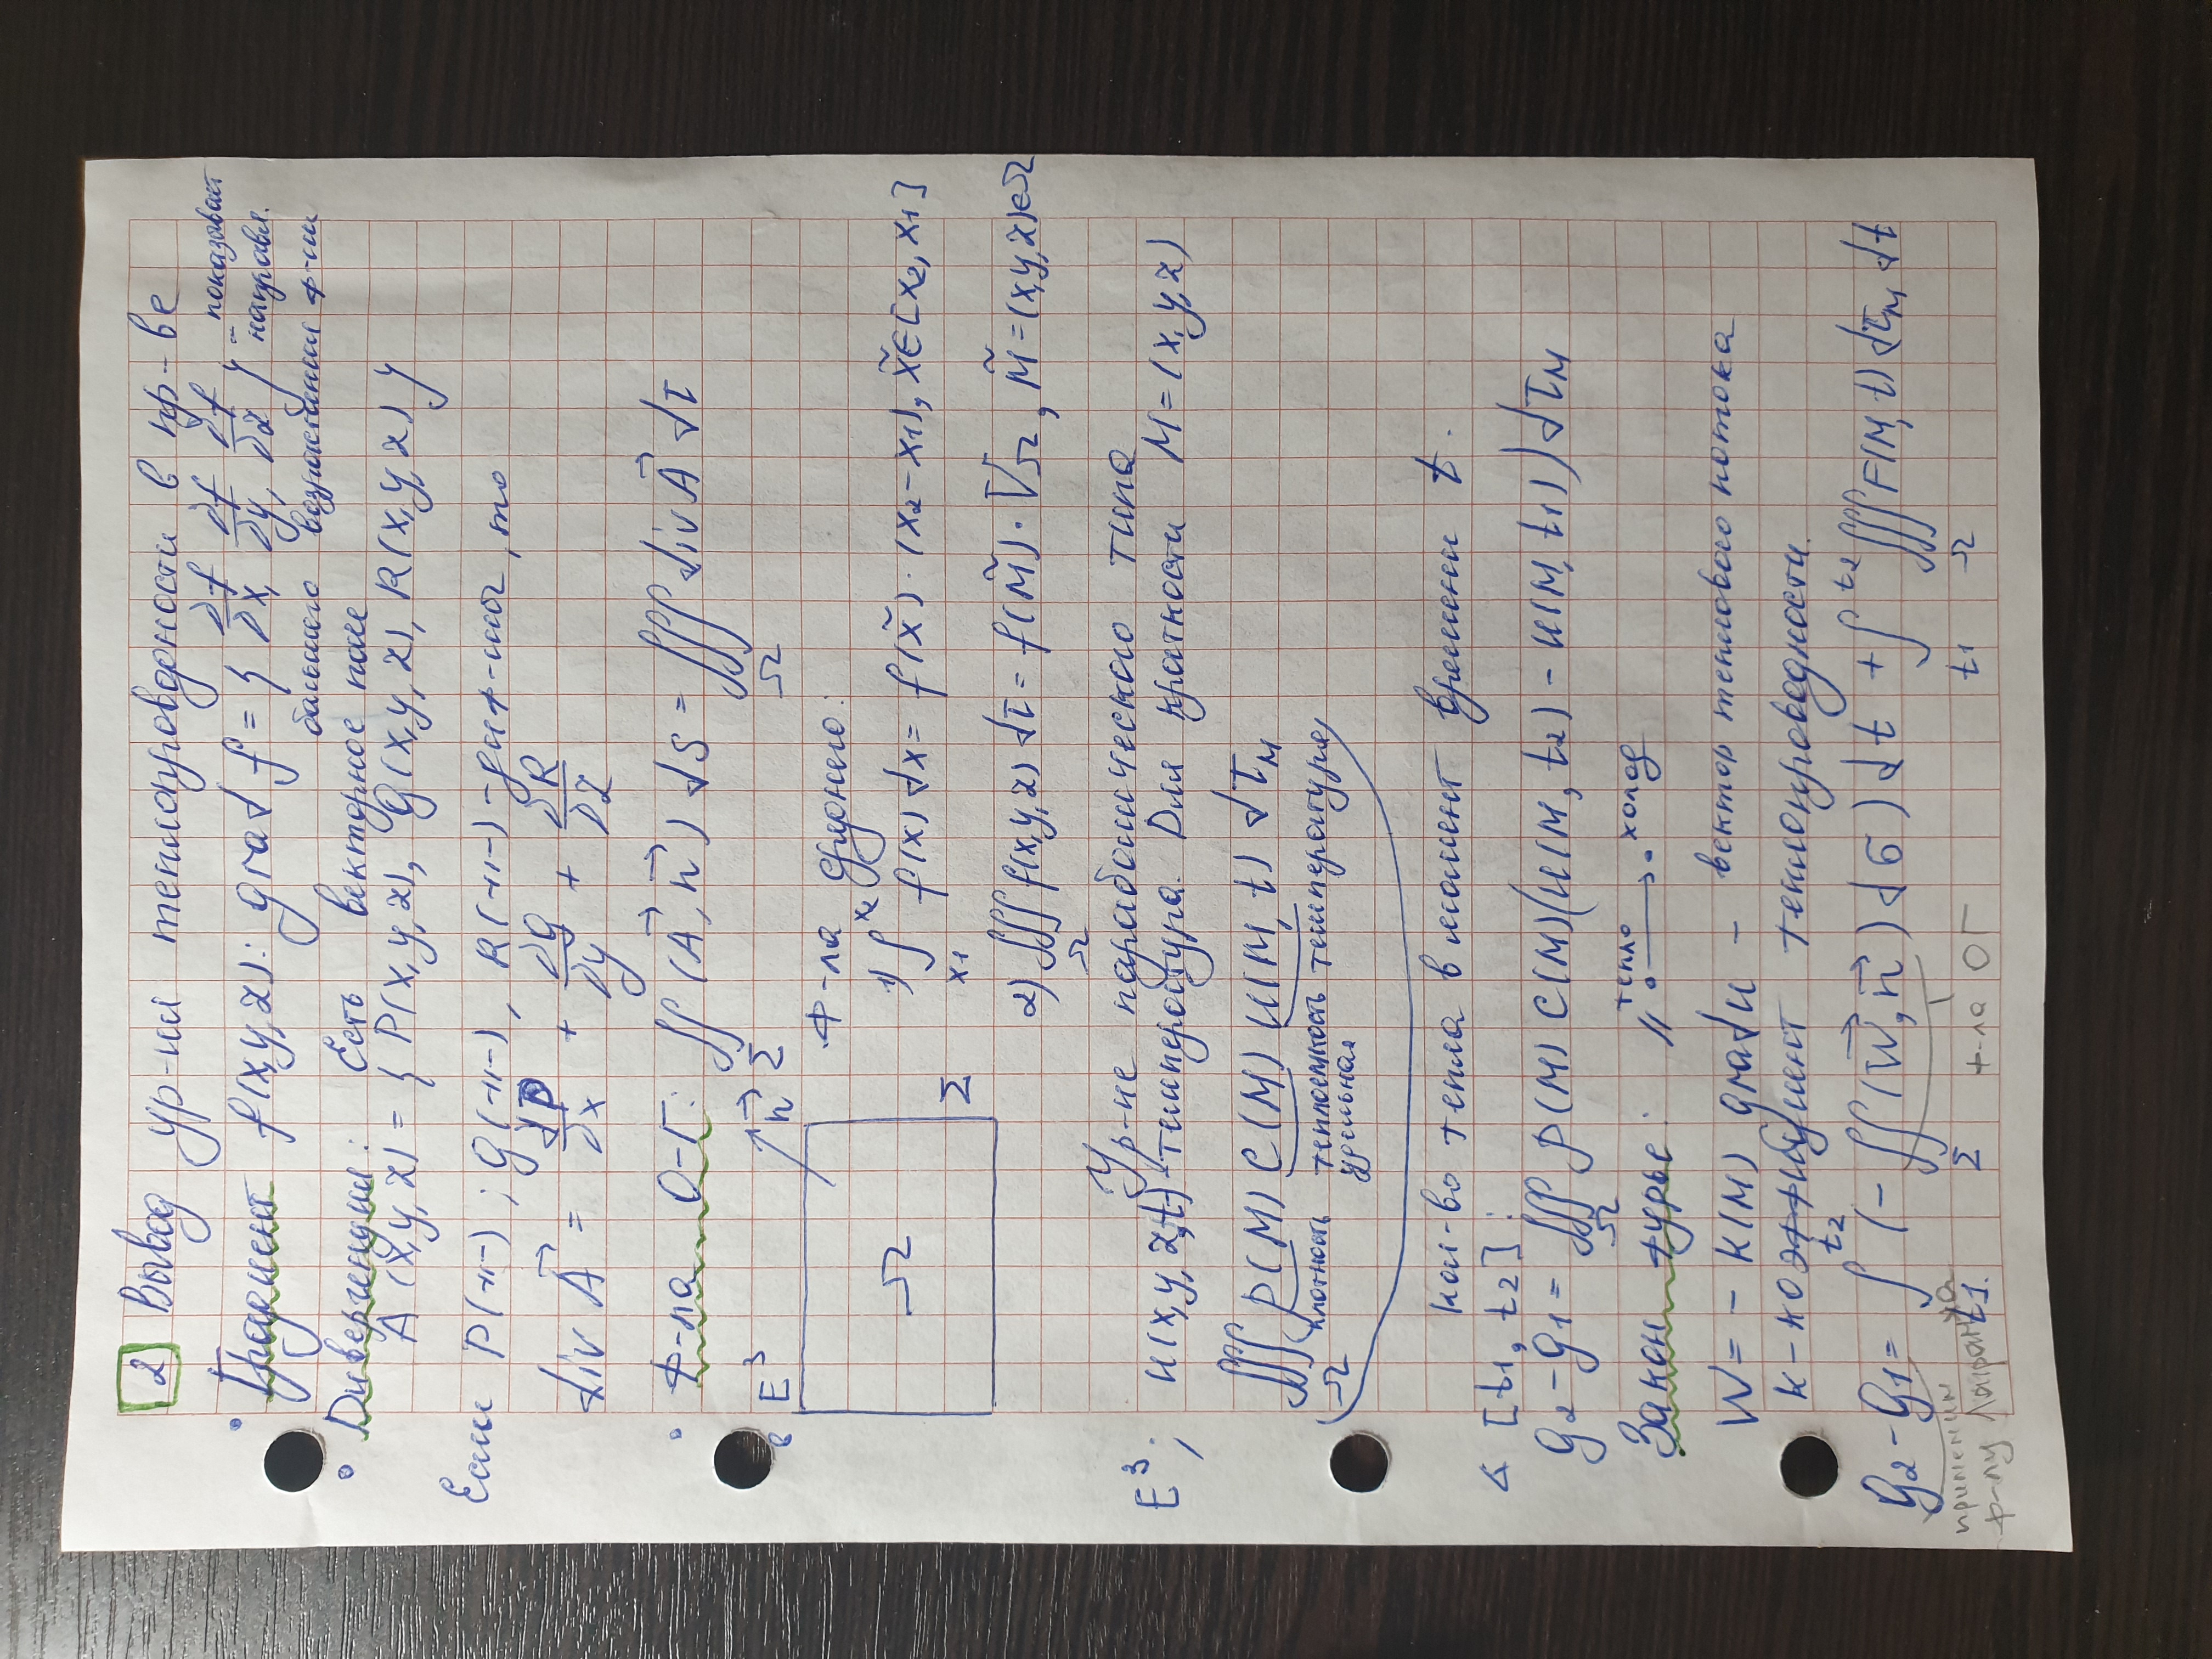 2 Вывод ур-ия теплопроводности в пр-ве
• Градиент f(x,y,z): grad f = { ∂f/∂x, ∂f/∂y, ∂f/∂z } - показывает направл.
большего возрастания ф-ии
• Дивергенция: Есть векторное поле
A(x,y,z) = { P(x,y,z), Q(x,y,z), R(x,y,z) }
Если P(-"-); Q(-"-), R(-"-) - диф-мы, то
div A⃗ = ∂P/∂x + ∂Q/∂y + ∂R/∂z
• Ф-ла О-Г: ∬_Σ (A⃗, n⃗) dS = ∭_Ω div A⃗ dτ
в E³ n⃗
Ω Σ
Ф-ла среднего:
1) ∫_{x1}^{x2} f(x) dx = f(x̃)·(x2-x1), x̃∈[x2, x1]
2) ∭_Ω f(x,y,z) dτ = f(M̃)·V_Ω, M̃=(x,y,z)∈Ω
Ур-ие параболического типа
E³; u(x,y,z,t)-температура. Для краткости M=(x,y,z)
∭_Ω ρ(M) C(M) u(M,t) dτ_M
плотность теплоемкость температура
удельная
кол-во тепла в момент времени t.
Δ [t1, t2]:
Q2-Q1 = ∭_Ω ρ(M) C(M)(u(M,t2) - u(M,t1)) dτ_M
Закон фурье: " тепло → холод
W = - k(M) grad u - вектор теплового потока
k-коэффициент теплопроводности.
Q2-Q1 = ∫_{t1}^{t2} (-∬_Σ (W⃗, n⃗) dσ) dt + ∫_{t1}^{t2} ∭_Ω F(M,t) dτ_M dt
применим ф-ла ОГ
ф-лу Лагранжа